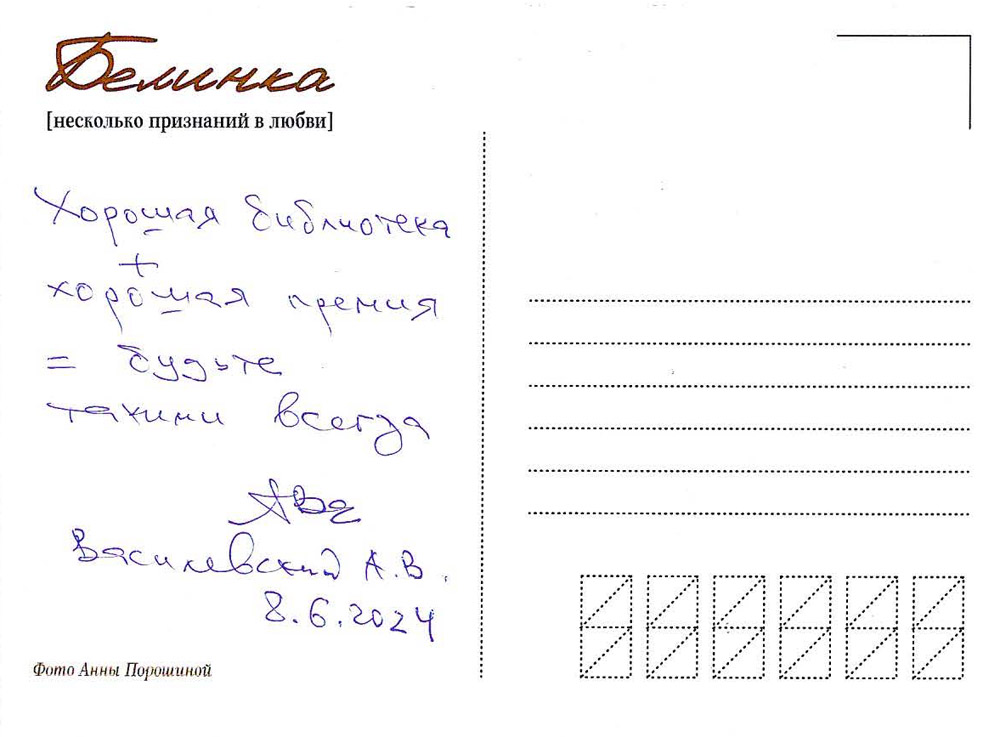 Белинка
[несколько признаний в любви]
Хорошая библиотека
+
хорошая премия
= будьте
такими всегда
Василевский А.В.
8.6.2024
Фото Анны Порошиной